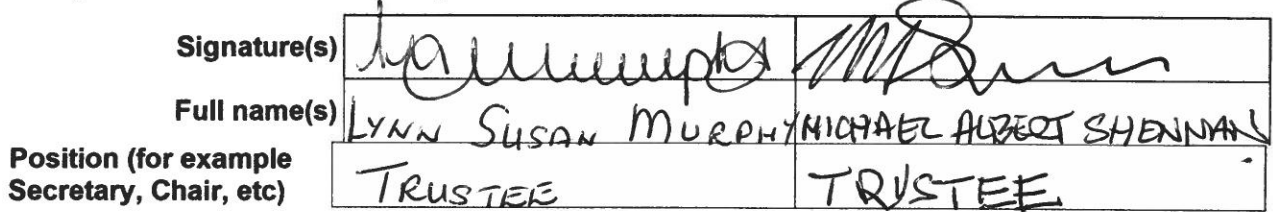 Signature(s)
Full name(s) LYNN SUSAN MURPHY MICHAEL ALBERT SHENNAN
Position (for example
Secretary, Chair, etc) TRUSTEE TRUSTEE